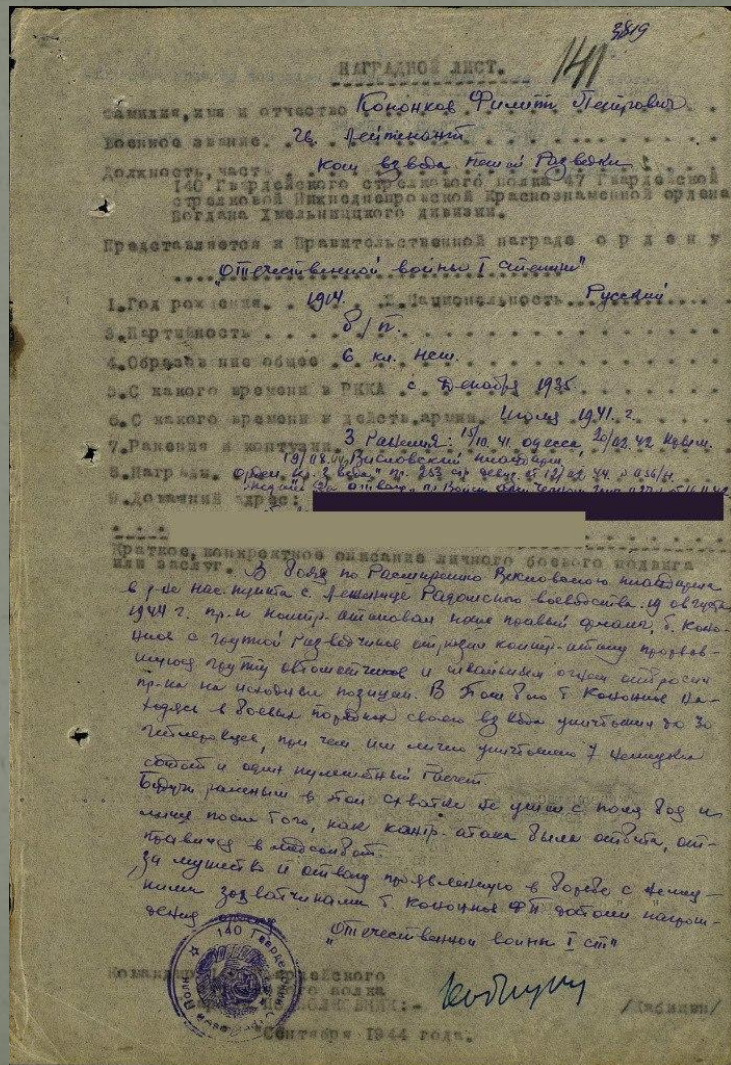 3819
141
НАГРАДНОЙ ЛИСТ.
Фамилия, имя и отчество Кононков Филипп Петрович
Военное звание. Гв. Лейтенант
Должность, часть ком взвода пешей разведки
140 Гвардейского стрелкового полка 47 Гвардейской
стрелковой Нижнеднепровской Краснознаменной ордена
Богдана Хмельницкого дивизии.
Представляется к Правительственной награде ордену
"Отечественной войны I степени"
1. Год рождения. 1914. 2. Национальность Русский
3. Партийность б/п.
4. Образование общее 6 кл. НСШ.
5. С какого времени в РККА с Декабря 1935
6. С какого времени в действ. армии. Июля 1941 г.
7. Ранения и контузии. 3 Ранения: 15/10. 41. Одесса, 20/02. 42
19/08.44 Висловский плацдарм
8. Награды. Орден Кр. Звезды" пр. 12/02 44.
9. Домашний адрес:
Краткое, конкретное описание личного боевого подвига
или заслуг. В боях по Расширению Висловского плацдарма
в р-не нас. пункта Радомского воеводства. 19 августа
1944 г. пр-к контр-атаковал наш правый фланг, т. Коно-
нков с группой разведчиков отражая контр-атаку прорвав-
шуюся группу автоматчиков и шквальным огнем отбросил
пр-ка на исходные позиции. В этом бою т. Кононков на-
ходясь в боевых порядках своего взвода уничтожил до 30
гитлеровцев, при чем им лично уничтожено 7 немецких
солдат и один пулеметный расчет.
Будучи раненым в этой схватке не ушел с поля боя и
лишь после того, как контр-атака была отбита, от-
правился в медсанбат.
За мужество и отвагу проявленную в борьбе с немец-
кими захватчиками т. Кононков ФП достоин награж-
дения орденом "Отечественной войны I ст"
140 Гвардейский
Командир Гвардейского
полка
:- /Кабицин/
Сентября 1944 года.